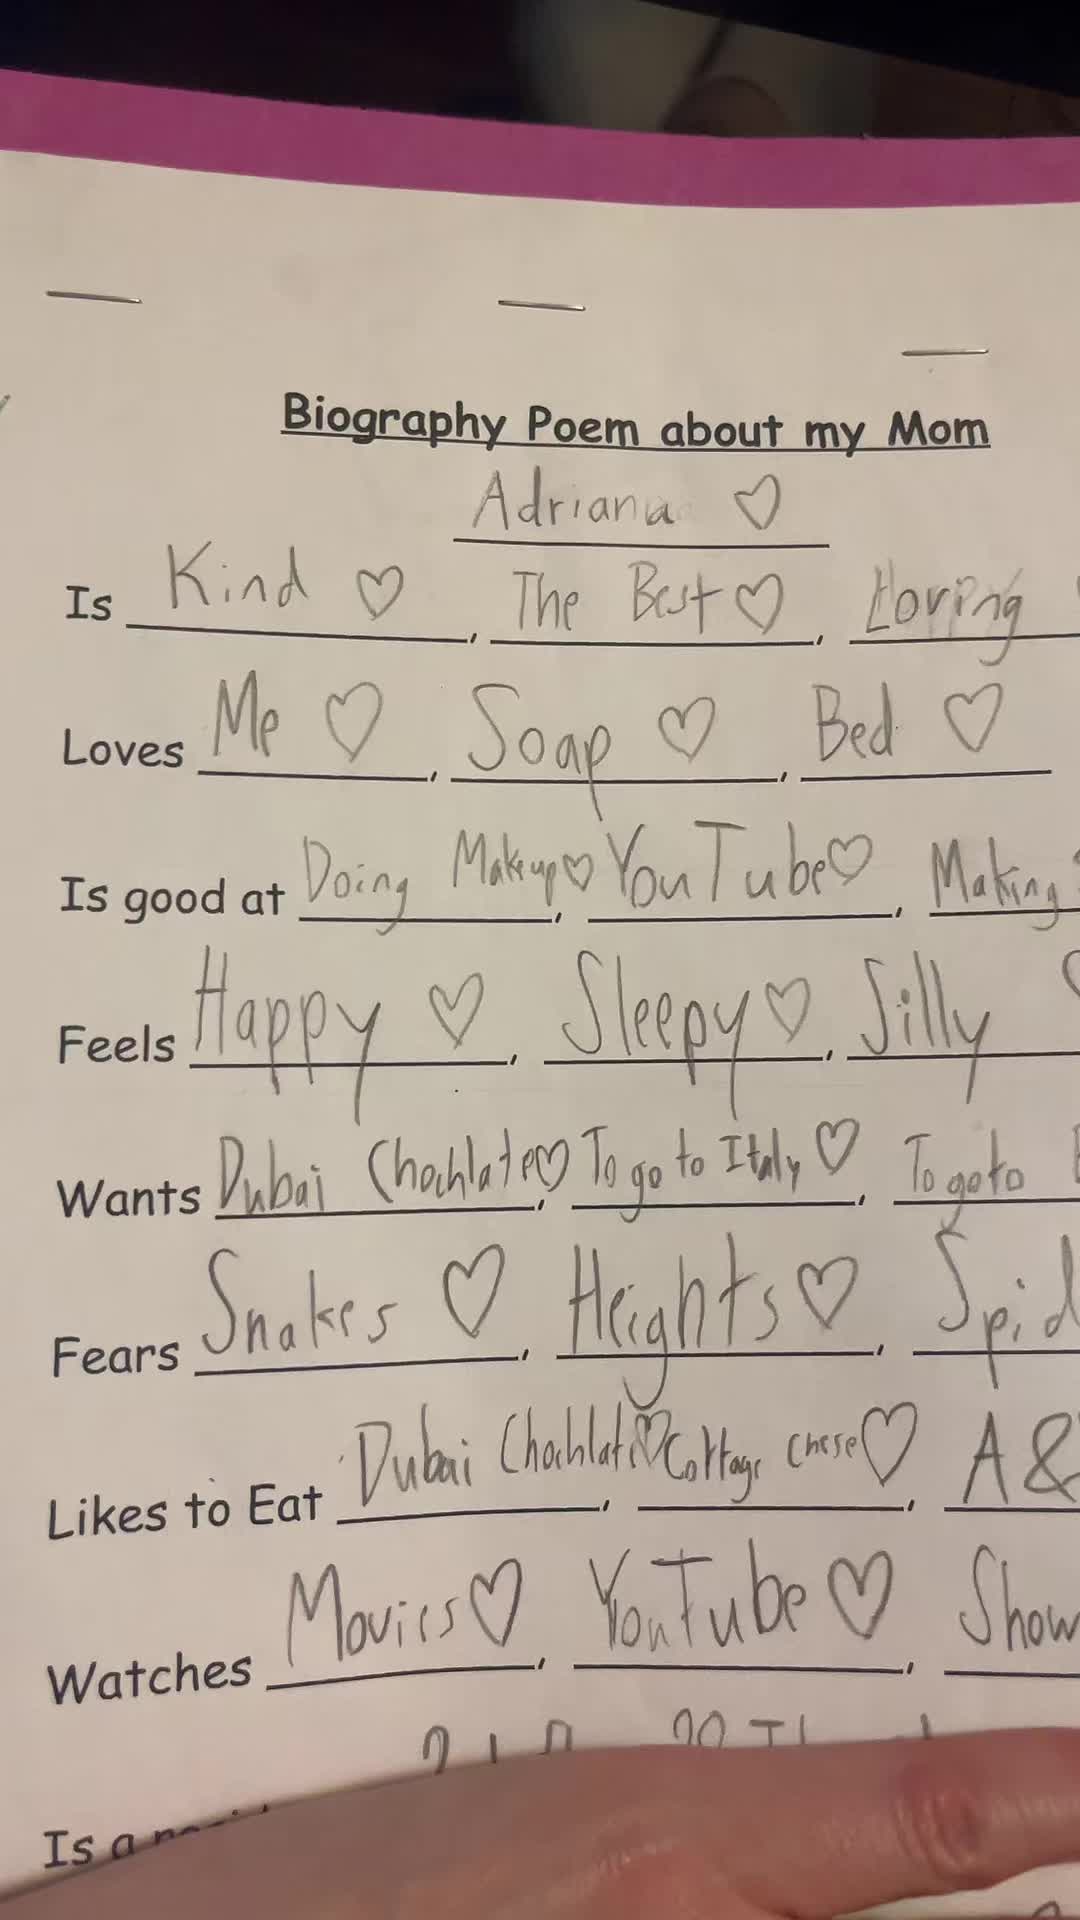 Biography Poem about my Mom
Adriana ♡
Is Kind ♡, The Best ♡, Loving
Loves Me ♡, Soap ♡, Bed ♡
Is good at Doing Makeup♡, YouTube♡, Making
Feels Happy ♡, Sleepy♡, Silly
Wants Dubai Chochlate♡, To go to Italy ♡, To go to
Fears Snakes ♡, Heights♡, Spid
Likes to Eat Dubai Chochlate♡, Cottage Chese♡, A&
Watches Movies♡, YouTube♡, Show
Is a